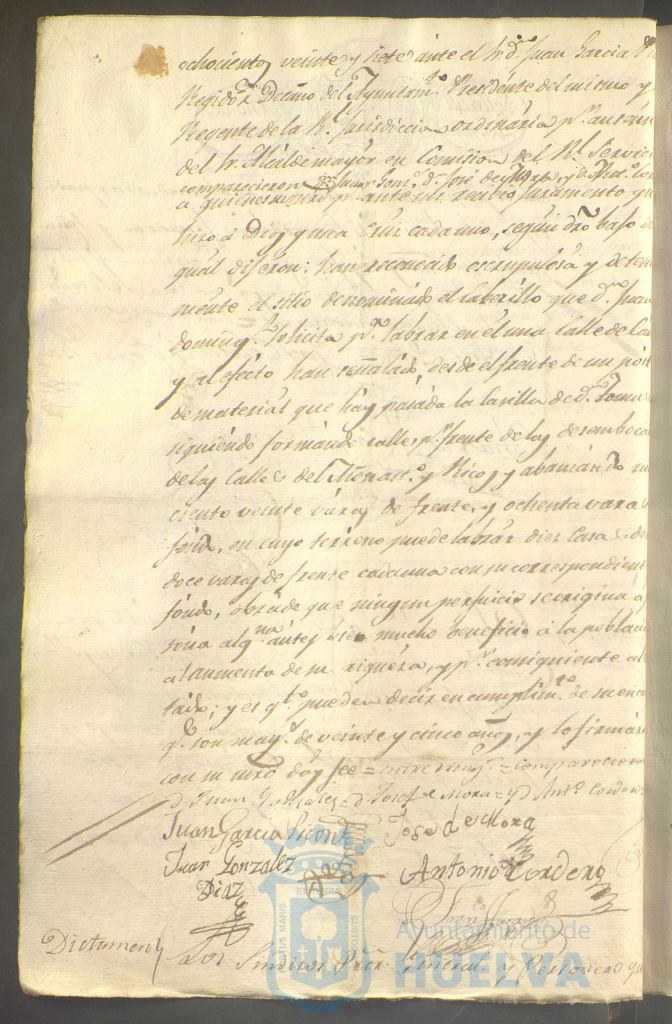 ochocientos veinte y siete ante el Sr. Dn. Juan Garcia
Regidor Decano del Ayuntamto. Presidente del mismo y
Regente de la Rl. Jurisdiccion ordinaria pr. ausencia
del Sr. Alcalde mayor en Comision del Rl. Servicio
comparecieron Dn. Juan Gonz. Dn. José de Mora, y Dn. Anto. Cor
a quienes pr. ante mi recibió juramento que
hizo á Dios y una Cruz cada uno, segun dro. bajo
qual dijeron: han reconocido escrupulosa y deten
mente el sitio denominado el que Dn. Juan
Doming. solicita pa. labrar en el una Calle de Ca
y al efecto han señalado, desde el frente de un
de material que hay pasada la Casilla de Dn. Toma
siguiendo formando calle, pr. frente de las desemboca
de las Calles del Monasto. y Rico, y abanzando
ciento veinte varas de frente, y ochenta varas
fondo, en cuyo terreno puede labrar diez Casas de
doce varas de frente cada una con su correspondient
fondo, obra de que ningun perjuicio se origina a
sona algna. antes bien mucho beneficio á la poblacio
al aumento de su riqueza, y pr. consiguiente al
tado; y es qto. pueden decir en cumplimto. de su enca
qe. son mays. de veinte y cinco años, y lo firmaro
con su mrd. doy feé = entre rengs. = comparecieron
Dn. Juan Gonzalez = Dn. Josef de Mora = y Dn. Anto. Cordero
Juan Garcia José de Mora
Juan Gonzalez Antonio Cordero
Diaz
Dictamen Los Sindicos Procr. General y Personero
Ayuntamiento de
HUELVA